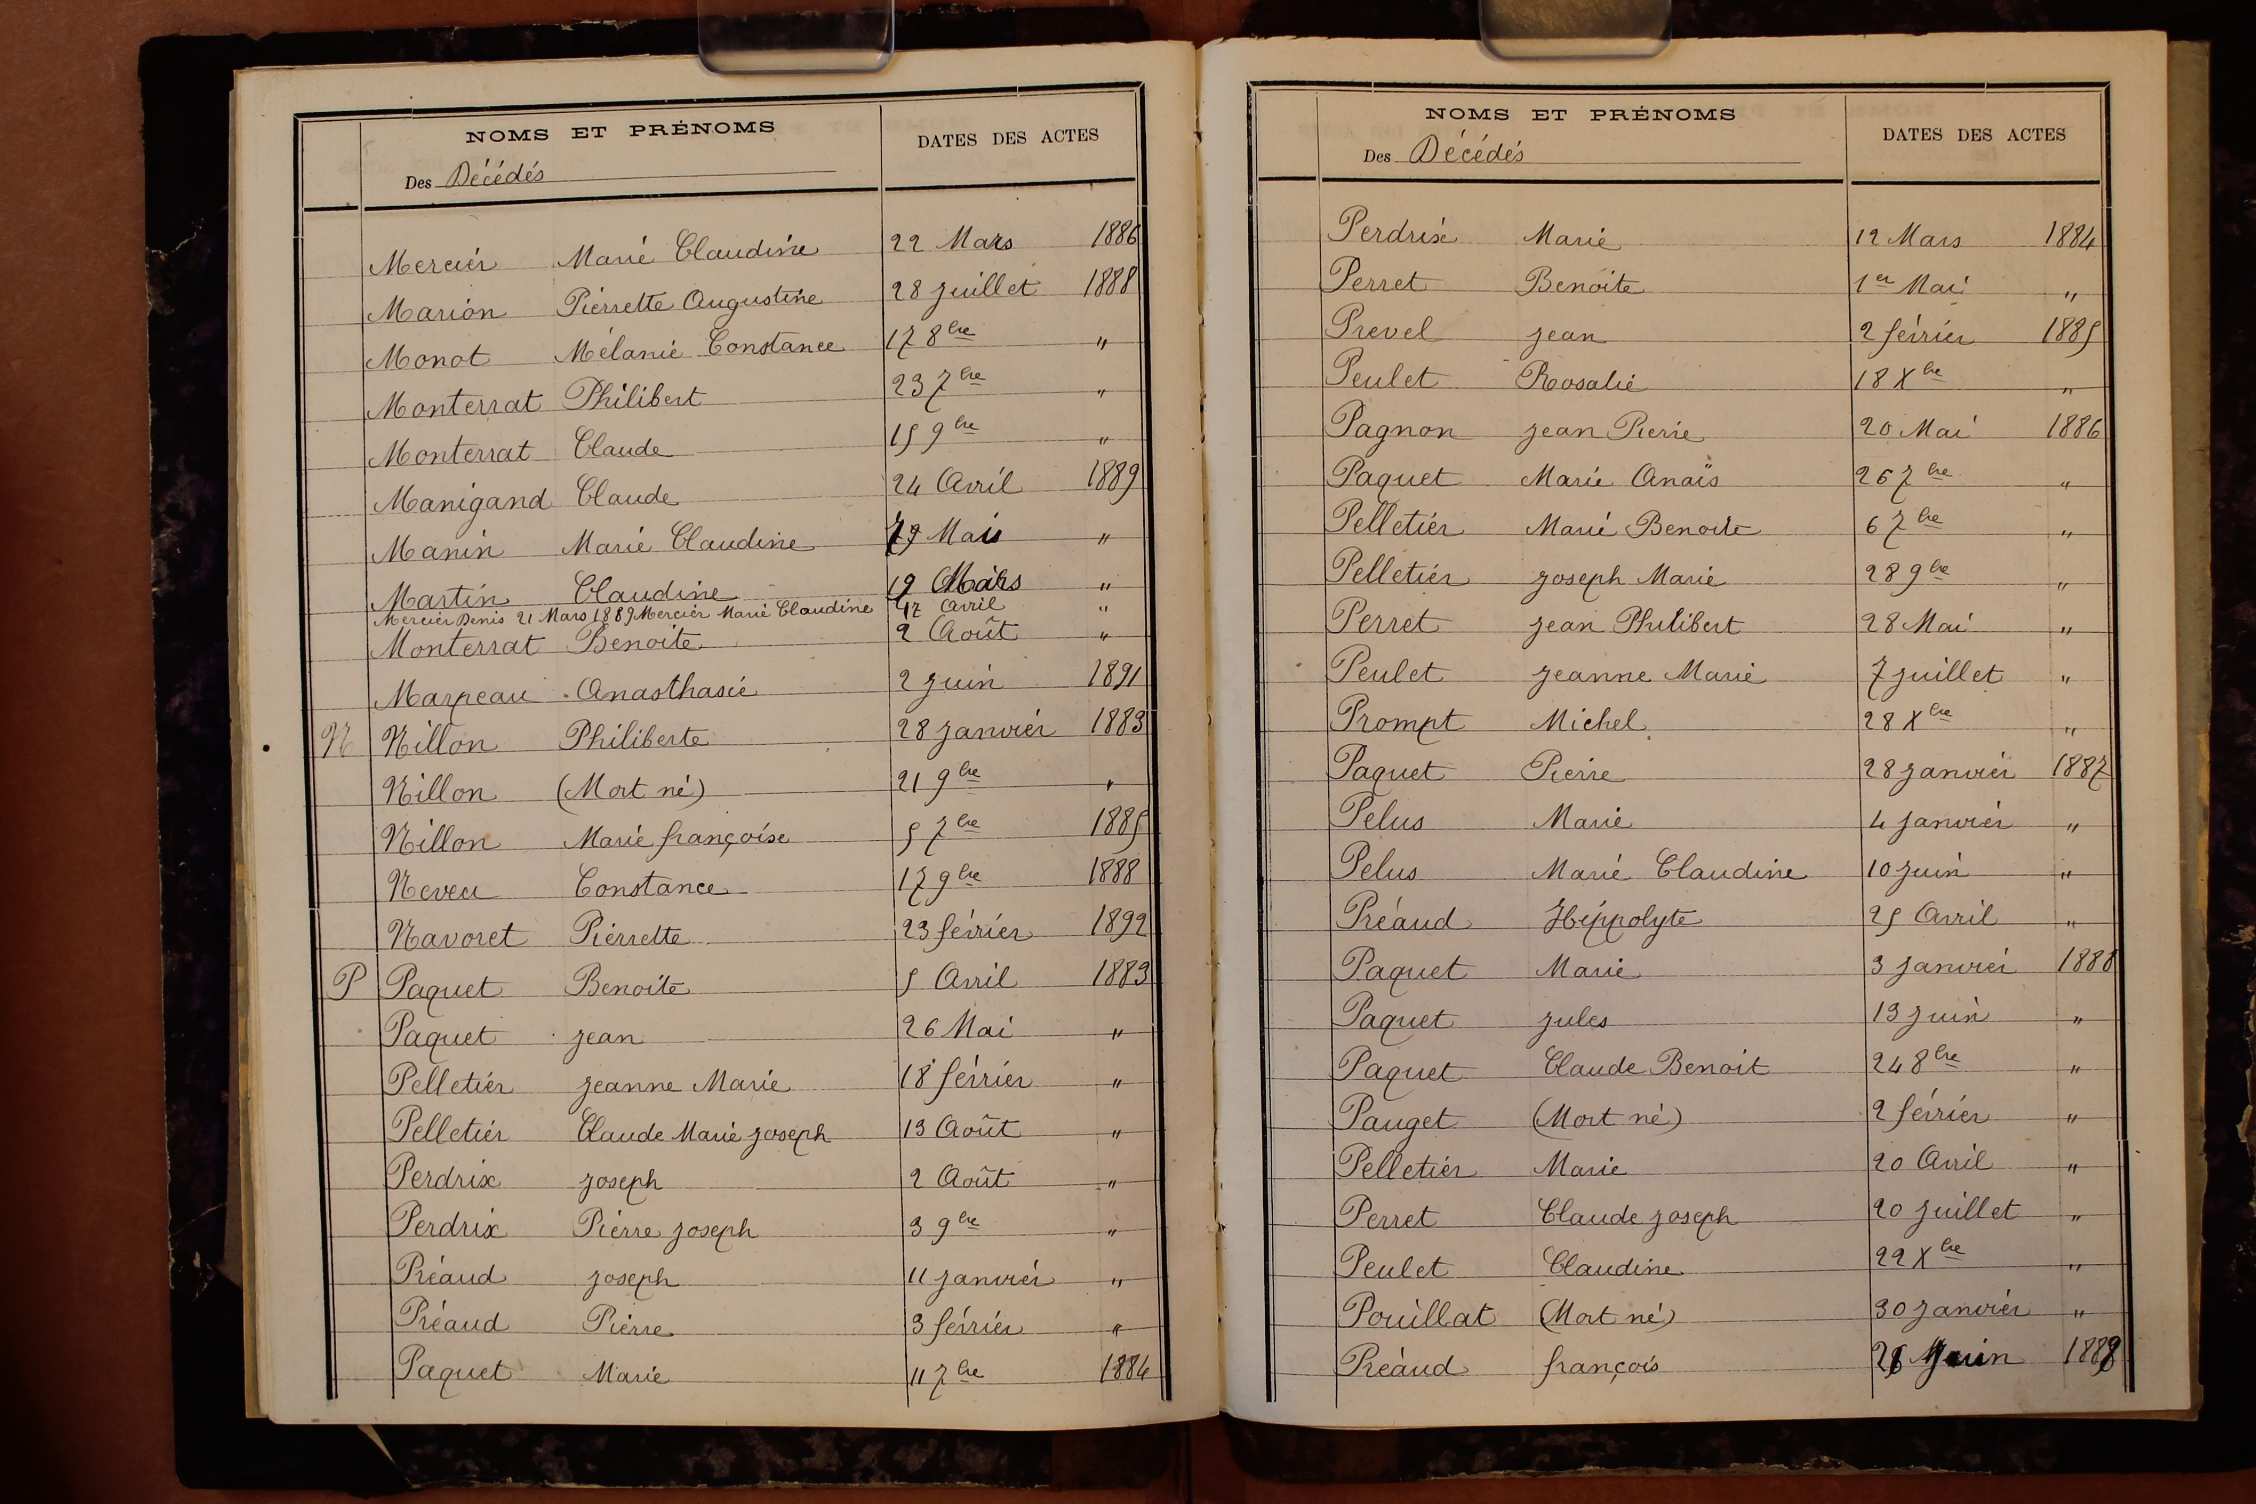 NOMS ET PRÉNOMS
Des Décédés
DATES DES ACTES
Mercier Marie Claudine 22 Mars 1886
Marion Pierrette Augustine 28 juillet 1888
Monot Mélanie Constance 17 8bre "
Monterrat Philibert 23 7bre "
Monterrat Claude 15 9bre "
Manigand Claude 24 Avril 1889
Manin Marie Claudine Mai "
Martin Claudine 19 Mars "
Mercier Denis 21 Mars 1889 Mercier Marie Claudine 12 avril "
Monterrat Benoite 2 Août "
Marpeau Anasthasie 2 juin 1891
N Nillon Philiberte 28 janvier 1883
Nillon (Mort né) 21 9bre "
Nillon Marie françoise 5 7bre 1885
Neveu Constance 17 9bre 1888
Navoret Pierrette 23 février 1892
P Paquet Benoite 5 Avril 1883
Paquet jean 26 Mai "
Pelletier jeanne Marie 18 février "
Pelletier Claude Marie joseph 13 Août "
Perdrix joseph 2 Août "
Perdrix Pierre joseph 3 9bre "
Préaud joseph 11 janvier "
Préaud Pierre 3 février "
Paquet Marie 11 7bre 1884
NOMS ET PRÉNOMS
Des Décédés
DATES DES ACTES
Perdrix Marie 12 Mars 1884
Perret Benoite 1er Mai "
Prevel jean 2 février 1885
Peulet Rosalie 18 Xbre "
Pagnon jean Pierre 20 Mai 1886
Paquet Marie Anaïs 26 7bre "
Pelletier Marie Benoite 6 7bre "
Pelletier joseph Marie 28 9bre "
Perret jean Philibert 28 Mai "
Peulet jeanne Marie 7 juillet "
Prompt Michel 28 Xbre "
Paquet Pierre 28 janvier 1887
Pelus Marie 4 janvier "
Pelus Marie Claudine 10 juin "
Préaud Hippolyte 25 Avril "
Paquet Marie 3 janvier 1888
Paquet jules 13 juin "
Paquet Claude Benoit 24 8bre "
Pauget (Mort né) 2 février "
Pelletier Marie 20 Avril "
Perret Claude joseph 20 juillet "
Peulet Claudine 22 Xbre "
Pouillat (Mort né) 30 janvier "
Préaud françois juin